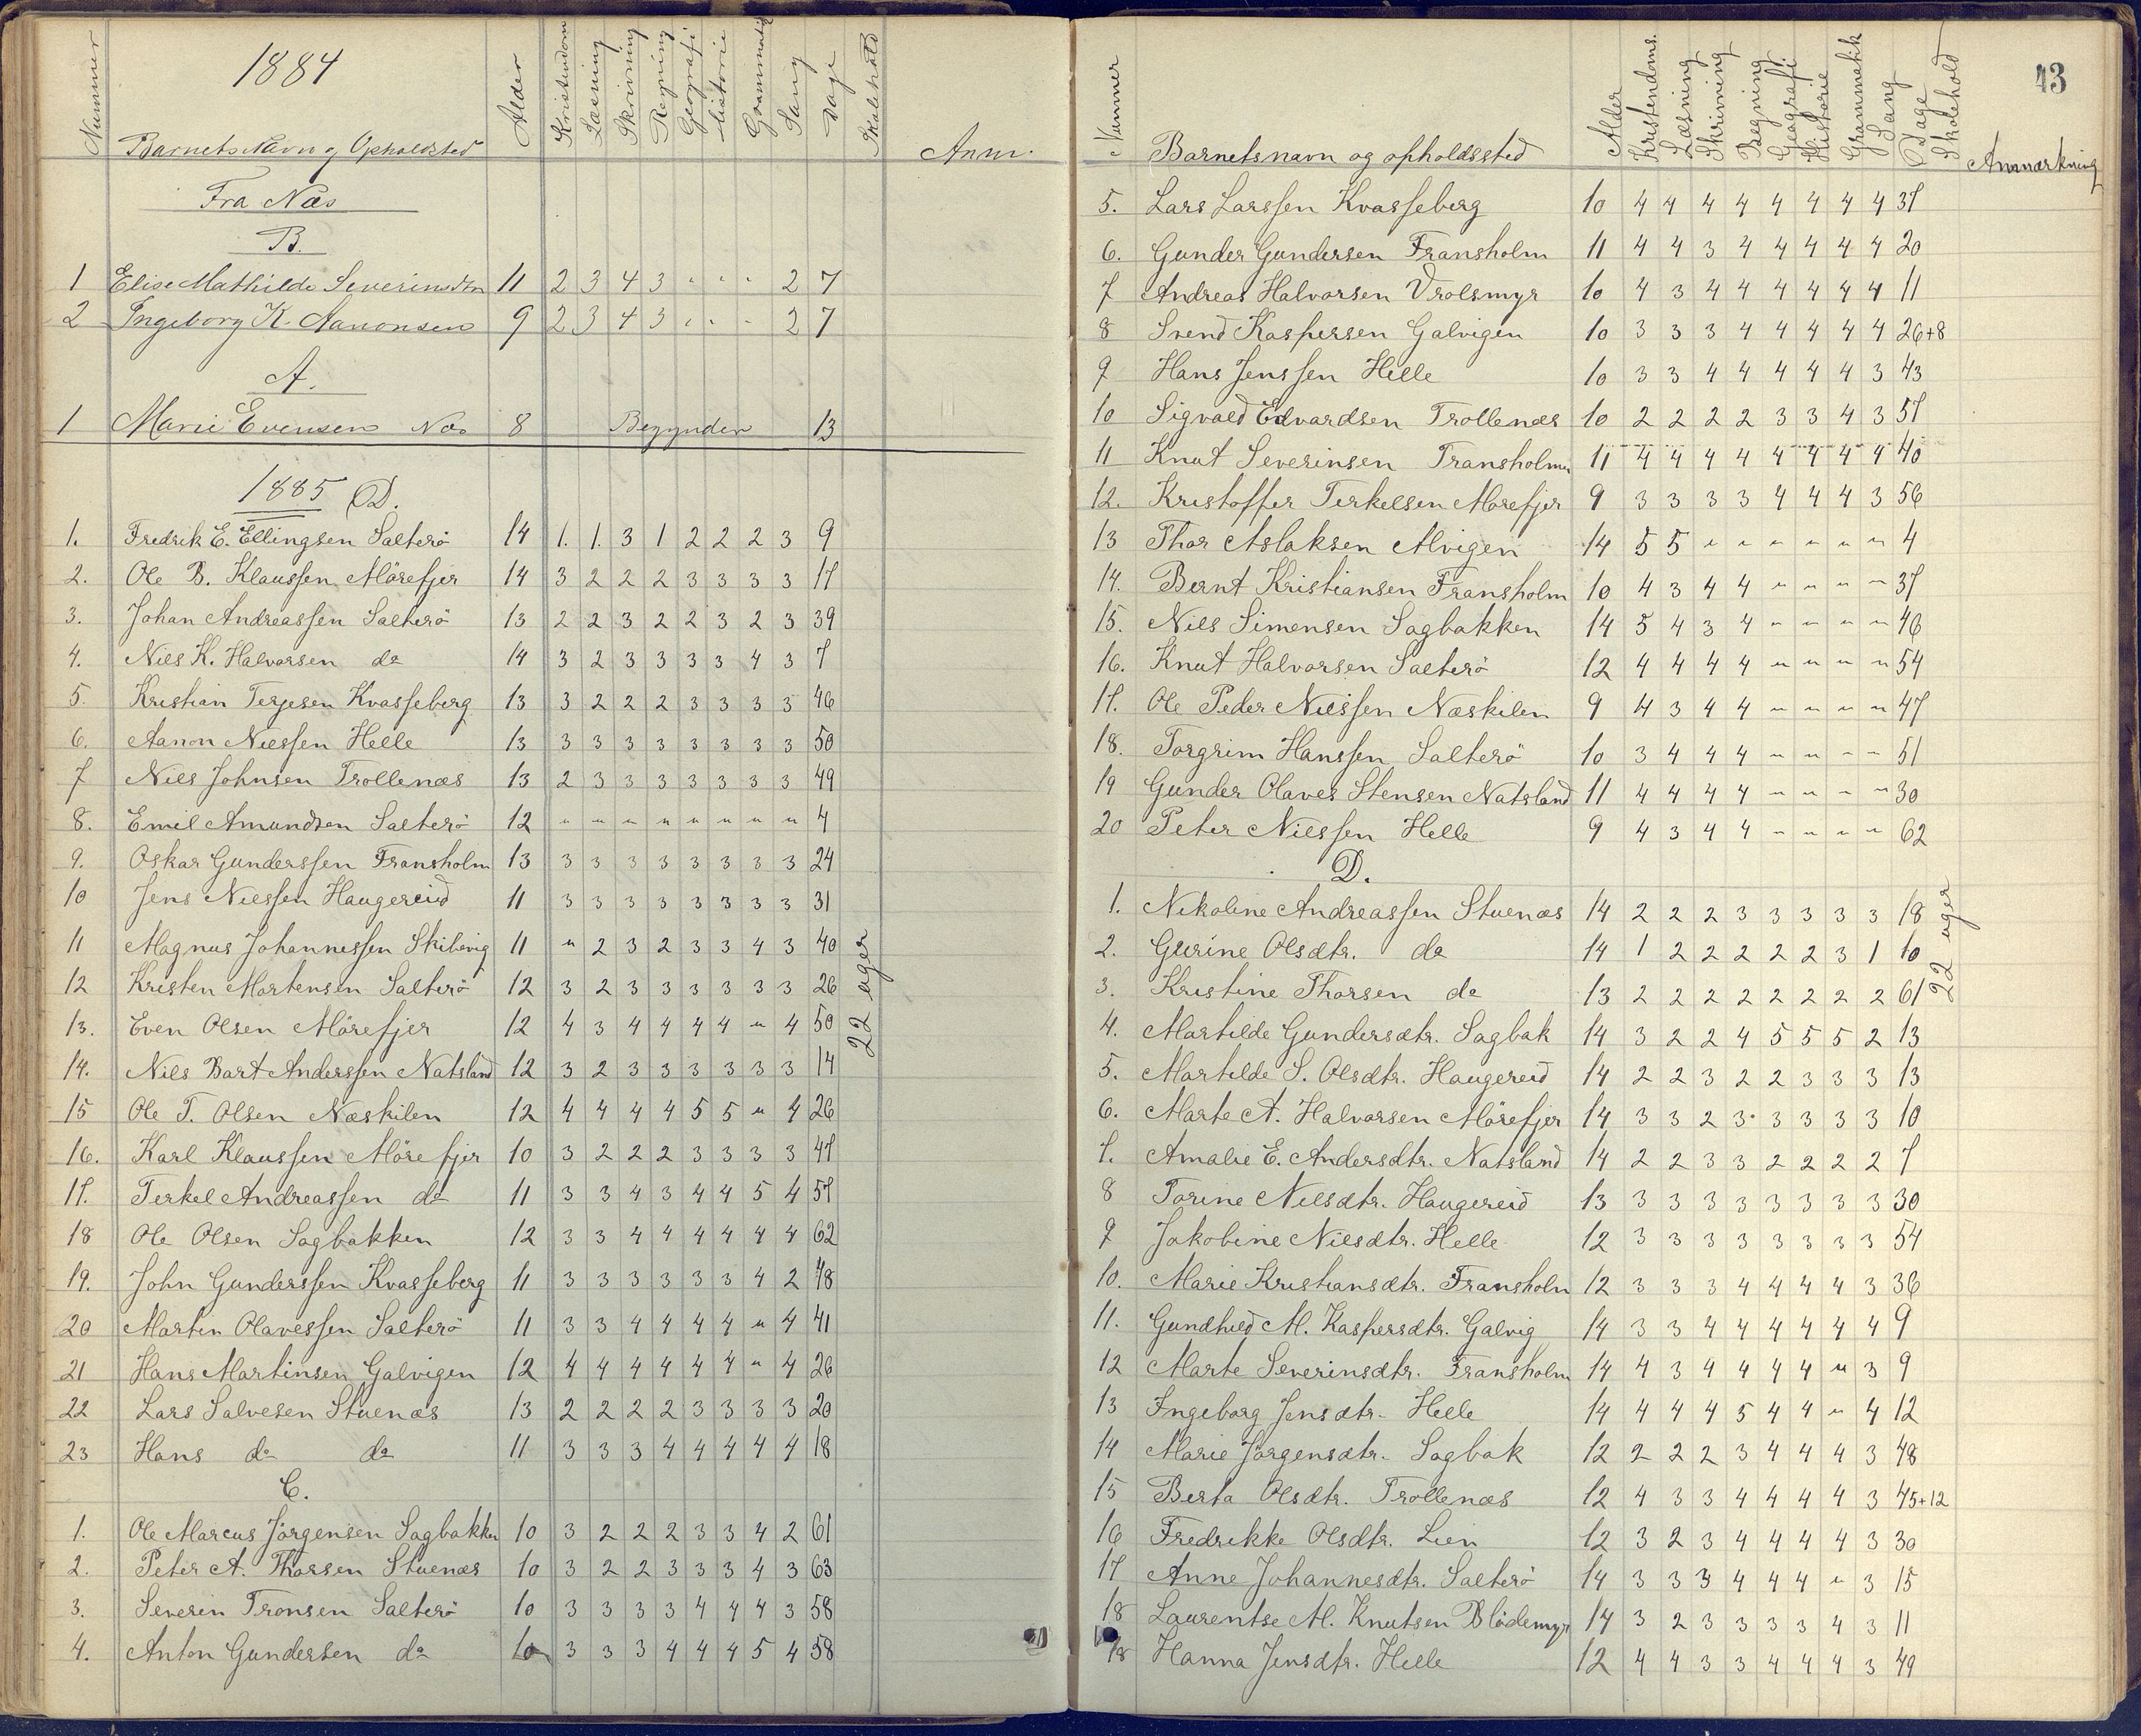 1884
Nummer Barnets Navn og Opholdsted Alder Kristendom Læsning Skrivning Regning Geografi historie Grammatik Sang Dage Skolehold Anm.
Fra Næs
B.
1 Elise Mathilde Severinsdtr 11 2 3 4 3 " " " 2 7
2 Ingeborg K. Aanonsen 9 2 3 4 3 " " " 2 7
A.
1 Marie Evensen Næs 8 Begynder 13
1885 D.
1. Fredrik E. Ellingsen Salterö 14 1. 1. 3 1 2 2 2 3 9
2. Ole B. Klaussen Mörefjer 14 3 2 2 2 3 3 3 3 17
3. Johan Andreassen Salterö 13 2 2 3 2 2 3 2 3 39
4. Niels K. Halvorsen do 14 3 2 3 3 3 3 4 3 7
5. Kristian Terjesen Kvasseberg 13 3 2 2 2 3 3 3 3 46
6. Aanon Nielssen Helle 13 3 3 3 3 3 3 3 3 50
7 Niels Johnsen Trollenæs 13 2 3 3 3 3 3 3 3 49
8. Emil Amundsen Salterö 12 " " " " " " " " 4
9. Oskar Gunderssen Fransholm 13 3 3 3 3 3 3 3 3 24
10 Jens Nielssen Haugereid 11 3 3 3 3 3 3 3 3 31
11 Magnus Johannessen Skibvig 11 " 2 3 2 3 3 4 3 40
12 Kristen Mortensen Salterö 12 3 2 3 3 3 3 3 3 26
13. Even Olsen Mörefjer 12 4 3 4 4 4 4 " 4 50
22 uger
14. Niels Bart Anderssen Natsland 12 3 2 3 3 3 3 3 3 14
15 Ole T. Olsen Næskilen 12 4 4 4 4 5 5 " 4 26
16. Karl Klaussen Mörefjer 10 3 2 2 2 3 3 3 3 47
17. Terkel Andreassen do 11 3 3 4 3 4 4 5 4 57
18 Ole Olsen Sagbakken 12 3 3 4 4 4 4 4 4 62
19. John Gunderssen Kvasseberg 11 3 3 3 3 3 3 4 2 48
20 Martin Olavessen Salterö 11 3 3 4 4 4 4 " 4 41
21 Hans Martinsen Galvigen 12 4 4 4 4 4 4 " 4 26
22 Lars Salvesen Stuenæs 13 2 2 2 2 3 3 3 3 20
23 Hans do do 11 3 3 3 4 4 4 4 4 18
C.
1. Ole Marcus Jörgensen Sagbakken 10 3 2 2 2 3 3 4 2 61
2. Peter A. Thorsen Stuenæs 10 3 2 2 3 3 3 4 3 63
3. Severin Tronsen Salterö 10 3 3 3 3 4 4 4 3 58
4. Anton Gundersen do 10 3 3 3 4 4 4 5 4 58
43
Nummer Barnets navn og opholdssted Alder Kristendoms. Læsning Skrivning Regning Geografi Historie Grammatik Sang Dage Skolehold Anmærkning
5. Lars Larssen Kvasseberg 10 4 4 4 4 4 4 4 4 37
6. Gunder Gundersen Fransholm 11 4 4 3 4 4 4 4 4 20
7 Andreas Halvorsen Vrolsmyr 10 4 3 4 4 4 4 4 4 11
8 Svend Kaspersen Galvigen 10 3 3 3 4 4 4 4 4 26+8
9 Hans Jenssen Helle 10 3 3 4 4 4 4 4 3 43
10 Sigvald Edvardsen Trollenæs 10 2 2 2 2 3 3 4 3 57
11 Knut Severinsen Fransholmen 11 4 4 4 4 4 4 4 4 40
12. Kristoffer Terkelsen Mörefjer 9 3 3 3 3 4 4 4 3 56
13 Thor Aslaksen Alvigen 14 5 5 " " " " " " 4
14. Bernt Kristiansen Fransholm 10 4 3 4 4 " " " " 37
15. Niels Simensen Sagbakken 14 5 4 3 4 " " " " 46
16. Knut Halvorsen Salterö 12 4 4 4 4 " " " " 54
17. Ole Peder Nielssen Næskilen 9 4 3 4 4 " " " " 47
18. Torgrim Hanssen Salterö 10 3 4 4 4 " " " " 51
19 Gunder Olaves Stensen Natsland 11 4 4 4 4 " " " " 30
20 Peter Nielssen Helle 9 4 3 4 4 " " " " 62
D.
1. Nikoline Andreassen Stuenæs 14 2 2 2 3 3 3 3 3 18
2. Gurine Olsdtr. do 14 1 2 2 2 2 2 3 1 10
22 uger
3. Kristine Thorsen do 13 2 2 2 2 2 2 2 2 61
4. Martilde Gundersdtr. Sagbak 14 3 2 2 4 5 5 5 2 13
5. Martilde S. Olsdtr. Haugereid 14 2 2 3 2 2 3 3 3 13
6. Marte A. Halvorsen Mörefjer 14 3 3 2 3 3 3 3 3 10
7. Amalie E. Andersdtr. Natsland 14 2 2 3 3 2 2 2 2 7
8 Torine Nielsdtr. Haugereid 13 3 3 3 3 3 3 3 3 30
9 Jakobine Nielsdtr. Helle 12 3 3 3 3 3 3 3 3 54
10. Marie Kristiansdtr. Fransholm 12 3 3 3 4 4 4 4 3 36
11. Gundhild M. Kaspersdtr. Galvig 14 3 3 4 4 4 4 4 4 9
12 Marte Severinsdtr. Fransholm 14 4 3 4 4 4 4 " 3 9
13 Ingeborg Jensdtr. Helle 14 4 4 4 5 4 4 " 4 12
14 Marie Jörgensdtr. Sagbak 12 2 2 2 3 4 4 4 3 48
15 Berta Olsdtr. Trollenæs 12 4 3 3 4 4 4 4 3 45+12
16 Fredrikke Olsdtr. Lien 12 3 2 3 4 4 4 4 3 30
17 Anne Johannesdtr. Salterö 14 3 3 3 4 4 4 " 3 15
18 Laurentse M. Knutsen Blödemyr 14 3 2 3 3 3 3 4 3 11
18 Hanna Jensdtr. Helle 12 4 4 3 3 4 4 4 3 49